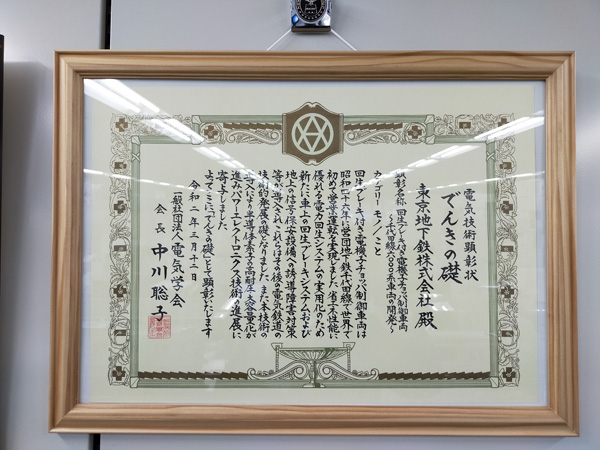 電気技術顕彰状
でんきの礎
東京地下鉄株式会社 殿
顕彰名称 回生ブレーキ付き電機子チョッパ制御車両
〜千代田線六〇〇〇系車両の開発〜
カテゴリー モノ／こと
回生ブレーキ付き電機子チョッパ制御車両は
昭和四十六年に営団地下鉄千代田線で世界で
初めて営業運転を実現しました 省エネ性能に
優れる電力回生システムの実用化のため
新たに車上の回生ブレーキシステムおよび
地上の信号保安設備への誘導障害対策
等が導入され これらはその後の電気鉄道の
技術的発展の礎となりました また本技術の
導入により半導体素子の高耐圧大容量化が
進みパワーエレクトロニクス技術の進展に
寄与しました
よってここに「でんきの礎」として顕彰いたします
令和二年三月十二日
一般社団法人 電気学会
会長 中川聡子